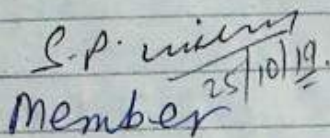 S.P.
25/10/19.
Member